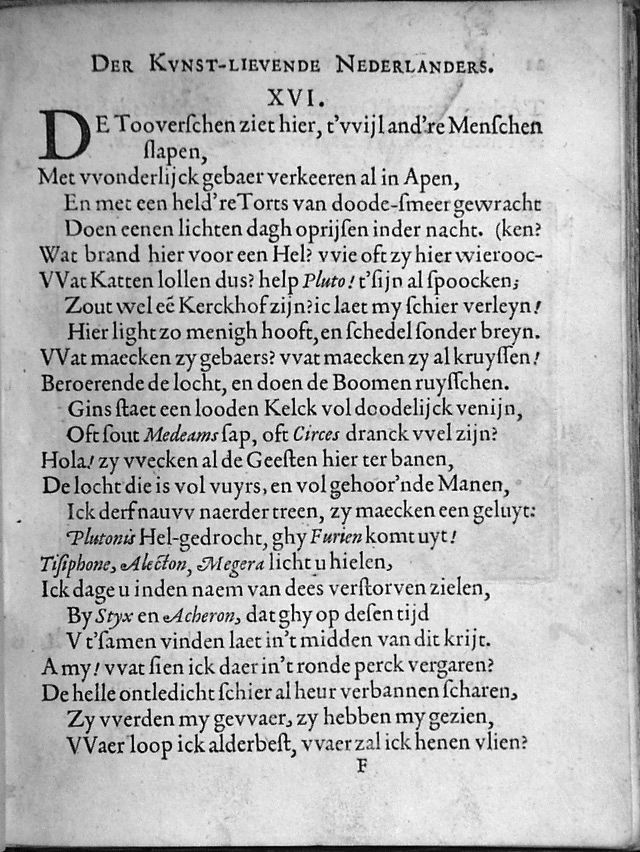 DER KVNST-LIEVENDE NEDERLANDERS.
XVI.
DE Tooverſchen ziet hier, t'vvijl and're Menſchen
ſlapen,
Met vvonderlijck gebaer verkeeren al in Apen,
En met een held're Torts van doode-ſmeer gewracht
Doen eenen lichten dagh oprijſen in der nacht. (ken?
Wat brand hier voor een Hel? vvie oft zy hier wierooc-
VVat Katten lollen dus? help Pluto! t'ſijn al ſpoocken;
Zout wel eē Kerckhof zijn? ic laet my ſchier verleyn!
Hier light zo menigh hooft, en ſchedel ſonder breyn.
VVat maecken zy gebaers? vvat maecken zy al kruyſſen!
Beroerende de locht, en doen de Boomen ruyſſchen.
Gins ſtaet een looden Kelck vol doodelijck venijn,
Oft ſout Medeams ſap, oft Circes dranck vvel zijn?
Hola! zy vvecken al de Geeſten hier ter banen,
De locht die is vol vuyrs, en vol gehoor'nde Manen,
Ick derf nauvv naerder treen, zy maecken een geluyt:
Plutonis Hel-gedrocht, ghy Furien komt uyt!
Tiſiphone, Alecton, Megera licht u hielen,
Ick dage u inden naem van dees verſtorven zielen,
By Styx en Acheron, dat ghy op deſen tijd
V t'ſamen vinden laet in't midden van dit krijt.
A my! vvat ſien ick daer in't ronde perck vergaren?
De helle ontledicht ſchier al heur verbannen ſcharen,
Zy vverden my gevvaer, zy hebben my gezien,
VVaer loop ick alderbeſt, vvaer zal ick henen vlien?
F